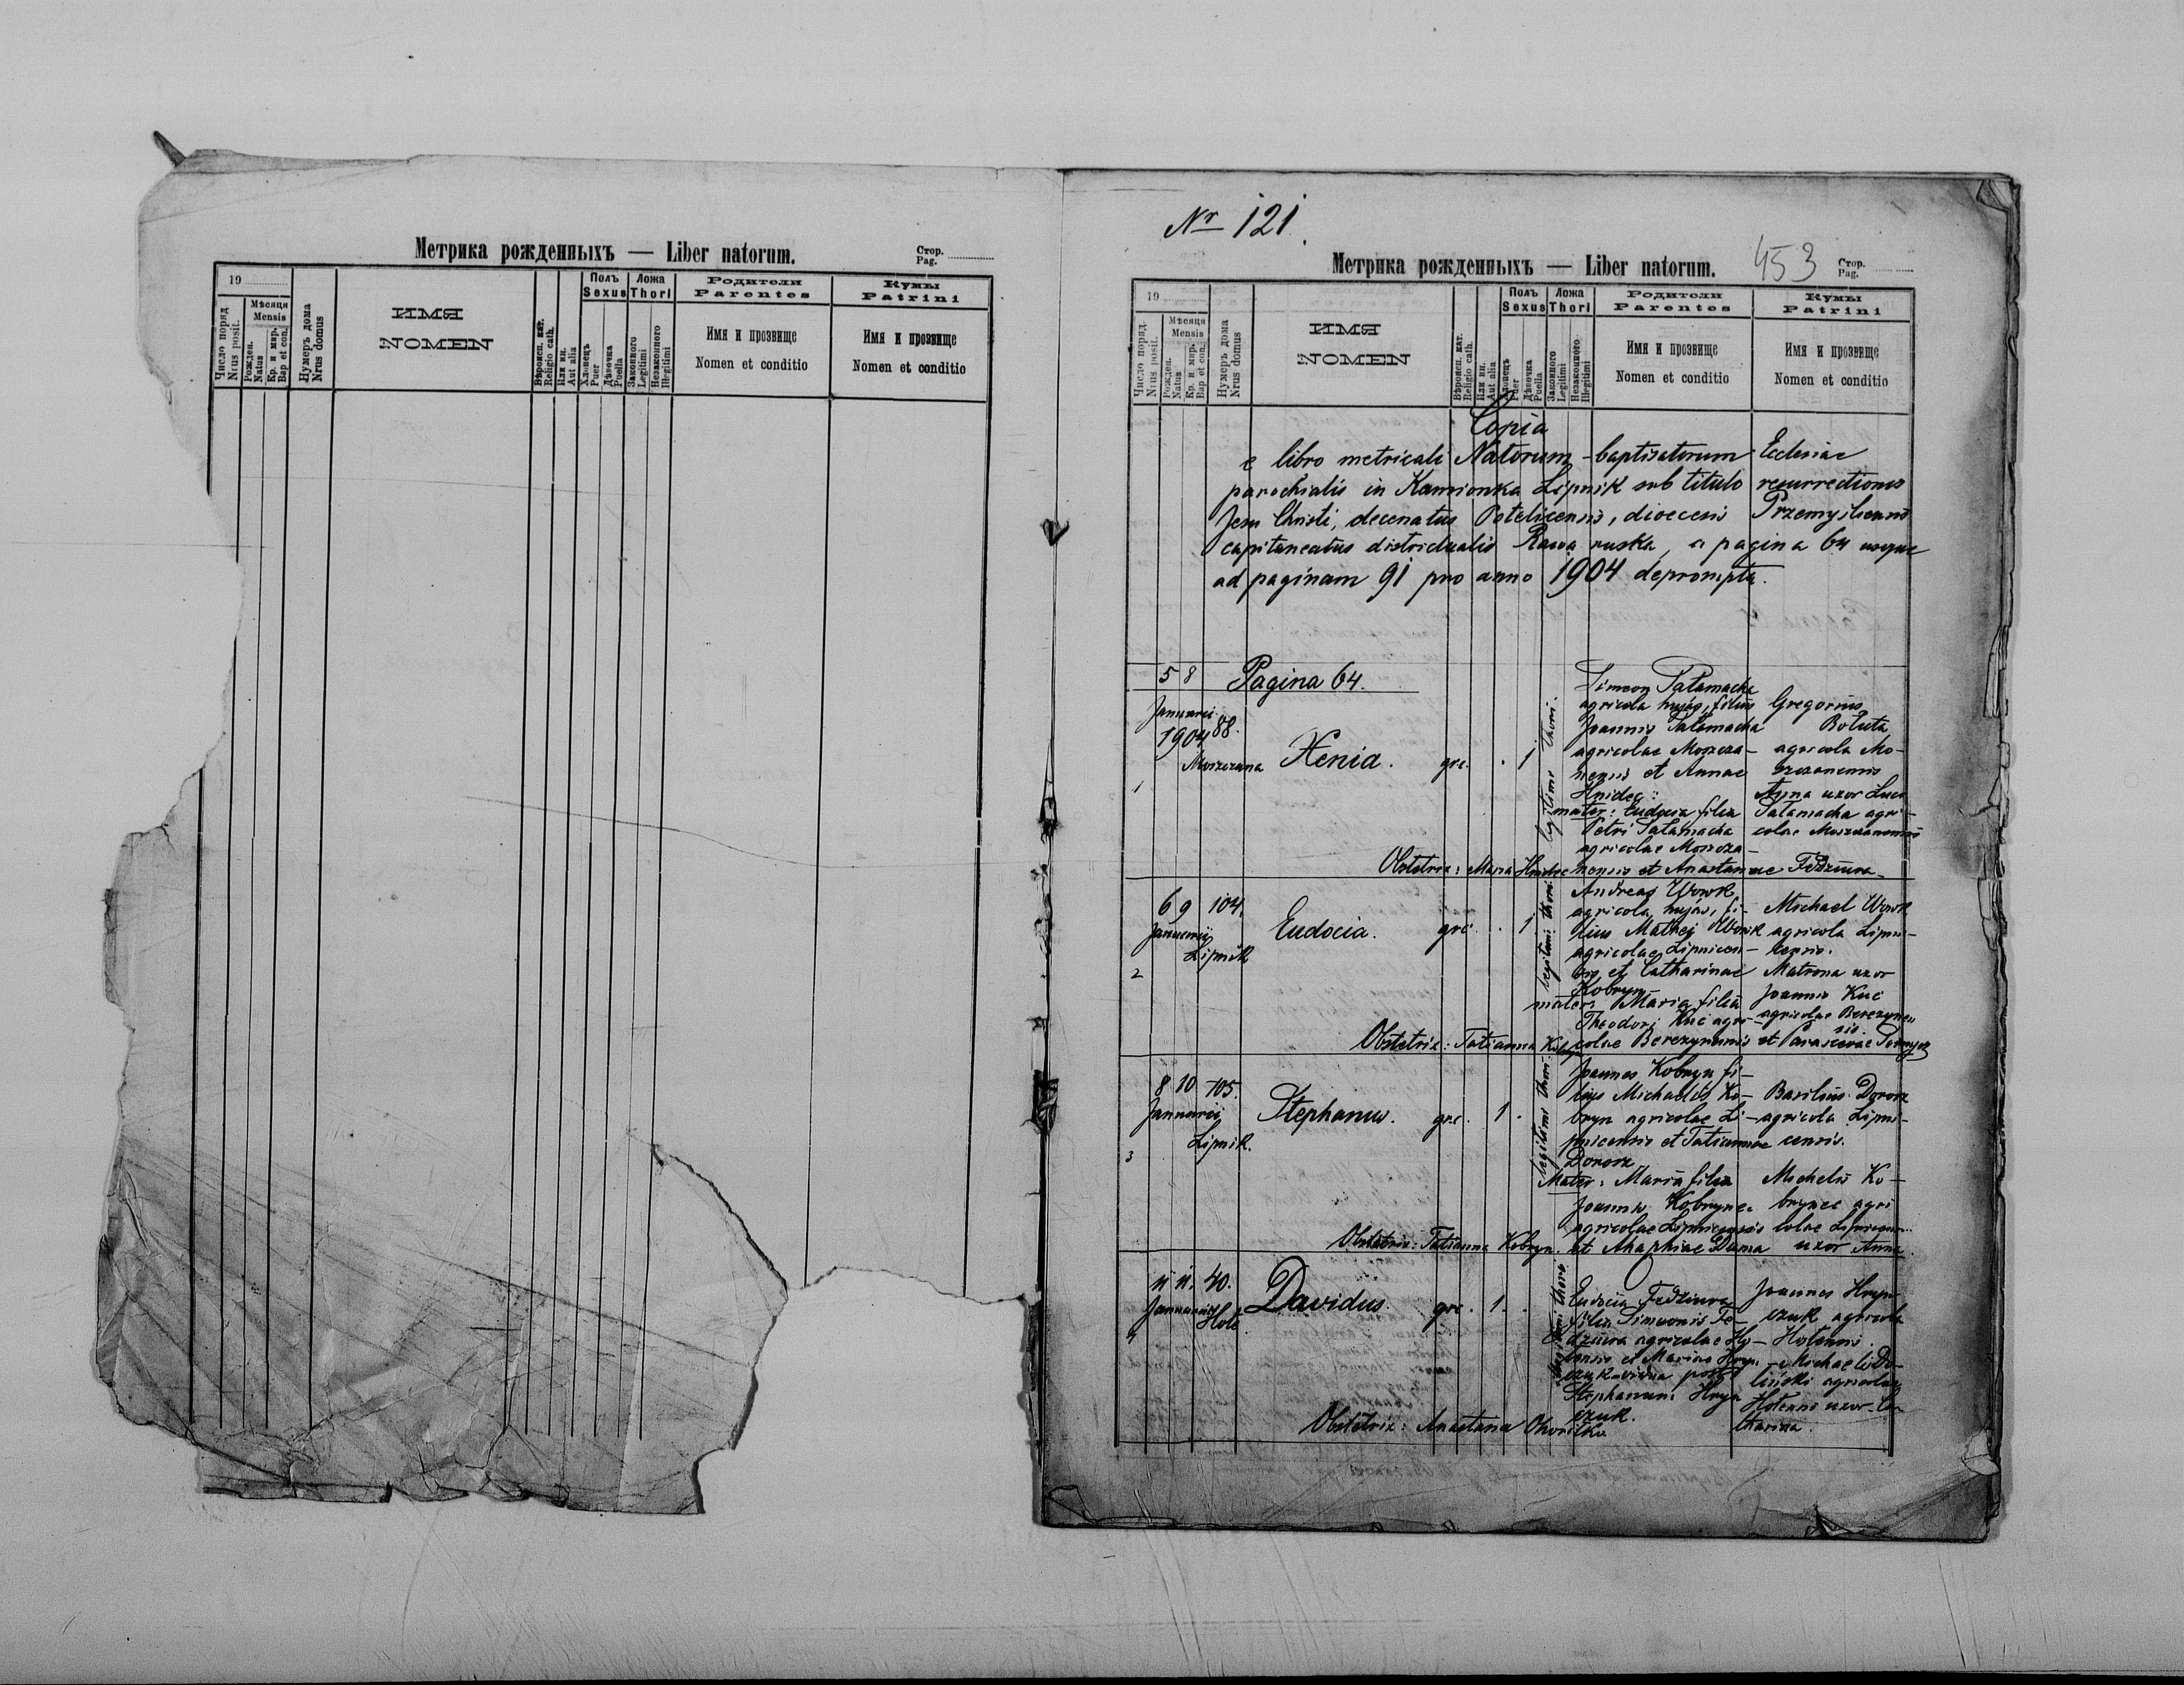 Метрика рожденныхъ — Liber natorum.
Стор.
Pag.
19
Число поряд
Nrus posit.
Мѣсяця
Mensis
Рожден.
Natus
Кр. и мир.
Bap et con.
Нумеръ дома
Nrus domus
ИМЯ
NOMEN
Вѣроисп. кат.
Religio cath.
Или ин.
Aut alia
Полъ
Sexus
Хлопецъ
Puer
Дѣвочка
Poella
Ложа
Thori
Законного
Legitimi
Незаконного
Illegitimi
Родители
Parentes
Имя и прозвище
Nomen et conditio
Кумы
Patrini
Имя и прозвище
Nomen et conditio
Nr 121.
Метрика рожденныхъ — Liber natorum.
453
Стор.
Pag.
19
Число поряд.
Nrus posit.
Мѣсяця
Mensis
Рожден.
Natus
Кр. и мир.
Bap et con.
Нумеръ дома
Nrus domus
ИМЯ
NOMEN
Вѣроисп. кат.
Religio cath.
Или ин.
Aut alia
Полъ
Sexus
Хлопецъ
Puer
Дѣвочка
Poella
Ложа
Thori
Законного
Legitimi
Незаконного
Illegitimi
Родители
Parentes
Имя и прозвище
Nomen et conditio
Кумы
Patrini
Имя и прозвище
Nomen et conditio
Copia
e libro metricali Natorum - baptisatorum Ecclesiae
parochialis in Kamionka Lipnik sub titulo resurrectionis
Jesu Christi, decenatus Potelicensis, dioecesis Przemysliensis
capitaneatus districtualis Rawa ruska, a pagina 64 usque
ad paginam 91 pro anno 1904 deprompta.
5 8 Pagina 64.
Januarii
1904 88.
Moszczana
1
Xenia. grc. . 1
legitimi thori.
Simeon Patamacha
agricola hujas, filius
Joannis Patamacha
agricolae Moszcza-
nensis et Annae
Hnidec:
mater: Eudocia filia
Petri Patamacha
agricolae Moszcza-
nensis et Anastasiae Fedziura
Gregorius
Boluta
agricola Mo-
szczanensis
Anna uxor Luca
Patamacha agri-
colae Moszczanensis
Obstetrix: Maria Hnidec
6 9 104.
Januarii
Lipnik
2
Eudocia. grc. . 1
legitimi thori
Andreas Wowk
agricola hujas, fi-
lius Mathej Wowk
agricolae Lipnicen-
sis et Catharinae
Kobryn
mater: Maria filia
Theodori Kuc agri-
colae Berezynensis et Parascevae
Michael Wowk
agricola Lipni-
censis.
Matrona uxor
Joannis Kuc
agricolae Berezynen
sis.
Obstetrix: Tatianna Kobryn
8 10 105.
Januarii
Lipnik.
3
Stephanus. grc. 1 .
legitimi thori
Joannes Kobryn fi-
lius Michaelis Ko-
bryn agricolae Li-
pnicensis et Tatiannae
Dorosz
Mater: Maria filia
Joannis Kobrynec
agricolae Lipnicensis
et Ahaphiae Duma
Basilius Dorosz
agricola Lipni-
censis.
Michelis Ko-
brynec agri
colae Lipnicen-
uxor Anna
Obstetrix: Tatianna Kobryn.
11 11. 40.
Januarii
Hole
4
Davidus. grc. 1. .
thori
Eudocia Fedziura
filia Simeonis Fe-
dziura agricolae Ho-
lensis et Mariae Hryn-
czuk vidua post
Stephanum Hryn
czuk.
Joannes Hryn-
czuk agricola
Holensis.
Michaelis Do-
liński agricolae
Holensis uxor Ca-
tharina.
Obstetrix: Anastasia Chorilko